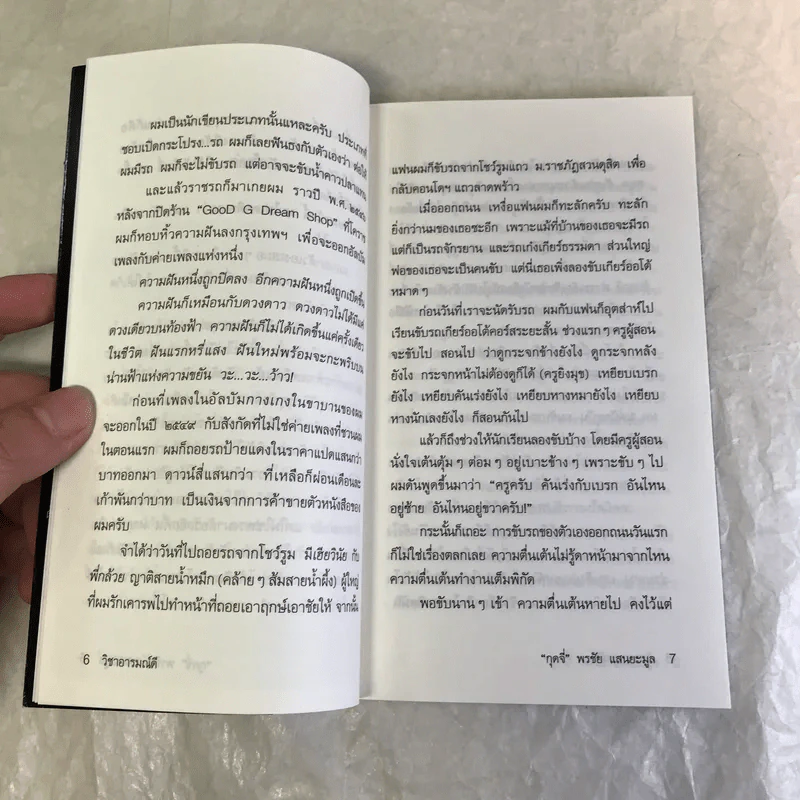 ผมเป็นนักเขียนประเภทนั้นแหละครับ ประเภทที่
ชอบเปิดกระโปรง...รถ ผมก็เลยฟันธงกับตัวเองว่า ต่อให้
ผมมีรถ ผมก็จะไม่ขับรถ แต่อาจจะขับน้ำคาวปลาแทน
และแล้วราชรถก็มาเกยผม ราวปี พ.ศ.
หลังจากปิดร้าน “GooD G Dream Shop” ที่โคราช
ผมก็หอบหิ้วความฝันลงกรุงเทพฯ เพื่อจะออกอัลบัม
เพลงกับค่ายเพลงแห่งหนึ่ง
ความฝันหนึ่งถูกปิดลง อีกความฝันหนึ่งถูกเปิดขึ้น
ความฝันก็เหมือนกับดวงดาว ดวงดาวไม่ได้มีแค่
ดวงเดียวบนท้องฟ้า ความฝันก็ไม่ได้เกิดขึ้นแค่ครั้งเดียว
ในชีวิต ฝันแรกหรี่แสง ฝันใหม่พร้อมจะกะพริบบน
น่านฟ้าแห่งความขยัน วะ...วะ...ว้าว!
ก่อนที่เพลงในอัลบัมกางเกงในขาบานของผม
จะออกในปี ๒๕๔๙ กับสังกัดที่ไม่ใช่ค่ายเพลงที่ชวนผม
ในตอนแรก ผมก็ถอยรถป้ายแดงในราคาแปดแสนกว่า
บาทออกมา ดาวน์สี่แสนกว่า ที่เหลือก็ผ่อนเดือนละ
เก้าพันกว่าบาท เป็นเงินจากการค้าขายตัวหนังสือของ
ผมครับ
จำได้ว่าวันที่ไปถอยรถจากโชว์รูม มีเฮียวินัย กับ
พี่กล้วย ญาติสายน้ำหมึก (คล้ายๆ ส้มสายน้ำผึ้ง) ผู้ใหญ่
ที่ผมรักเคารพไปทำหน้าที่ถอยเอาฤกษ์เอาชัยให้ จากนั้น
6 วิชาอารมณ์ดี
แฟนผมก็ขับรถจากโชว์รูมแถว ม.ราชภัฏสวนดุสิต เพื่อ
กลับคอนโดฯ แถวลาดพร้าว
เมื่อออกถนน เหงื่อแฟนผมก็ทะลักครับ ทะลัก
ยิ่งกว่านมของเธอซะอีก เพราะแม้ที่บ้านของเธอจะมีรถ
แต่ก็เป็นรถจักรยาน และรถเก๋งเกียร์ธรรมดา ส่วนใหญ่
พ่อของเธอจะเป็นคนขับ แต่นี่เธอเพิ่งลองขับเกียร์ออโต้
หมาดๆ
ก่อนวันที่เราจะนัดรับรถ ผมกับแฟนก็อุตส่าห์ไป
เรียนขับรถเกียร์ออโต้คอร์สระยะสั้น ช่วงแรกๆ ครูผู้สอน
จะขับไป สอนไป ว่าดูกระจกข้างยังไง ดูกระจกหลัง
ยังไง กระจกหน้าไม่ต้องดูก็ได้ (ครูยิงมุข) เหยียบเบรก
ยังไง เหยียบคันเร่งยังไง เหยียบหางหมายังไง เหยียบ
หางนักเลงยังไง ก็สอนกันไป
แล้วก็ถึงช่วงให้นักเรียนลองขับบ้าง โดยมีครูผู้สอน
นั่งใจเต้นตุ้มๆ ต่อมๆ อยู่เบาะข้างๆ เพราะขับๆ ไป
ผมดันพูดขึ้นมาว่า “ครูครับ คันเร่งกับเบรก อันไหน
อยู่ซ้าย อันไหนอยู่ขวาครับ!”
กระนั้นก็เถอะ การขับรถของตัวเองออกถนนวันแรก
ก็ไม่ใช่เรื่องตลกเลย ความตื่นเต้นไม่รู้ดาหน้ามาจากไหน
ความตื่นเต้นทำงานเต็มพิกัด
พอขับนานๆ เข้า ความตื่นเต้นหายไป คงไว้แต่
“กุดจี่” พรชัย แสนยะมูล 7